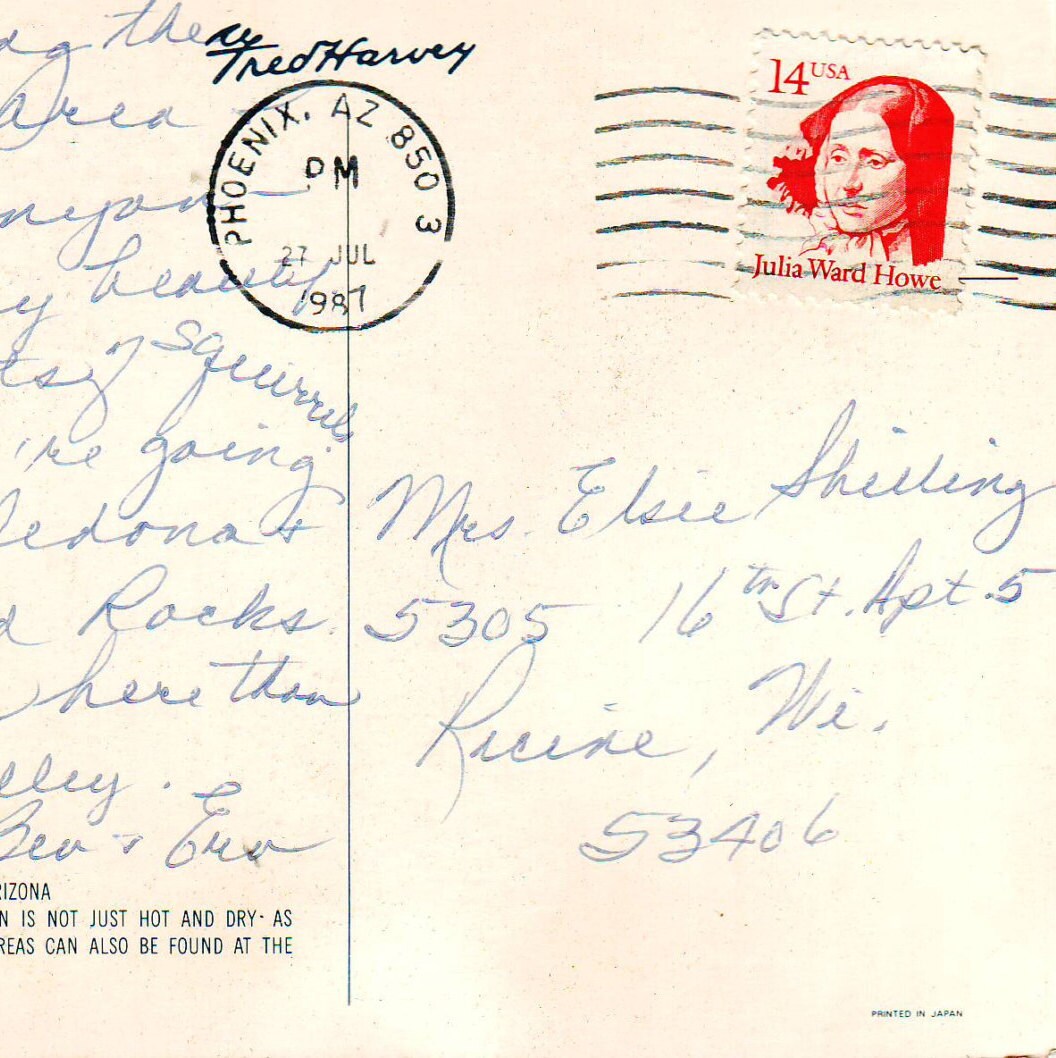 the
by Fred Harvey
Area
PHOENIX, AZ 850 3
PM
27 JUL
1987
14 USA
Julia Ward Howe
nyon -
y beautiful
ts of squirrels
're going
Sedona +
d Rocks.
here than
lley.
Bev + Erv
RIZONA
N IS NOT JUST HOT AND DRY - AS
REAS CAN ALSO BE FOUND AT THE
Mrs. Elsie Shilling
5305 16th St. Apt. 5
Racine, Wi.
53406
PRINTED IN JAPAN